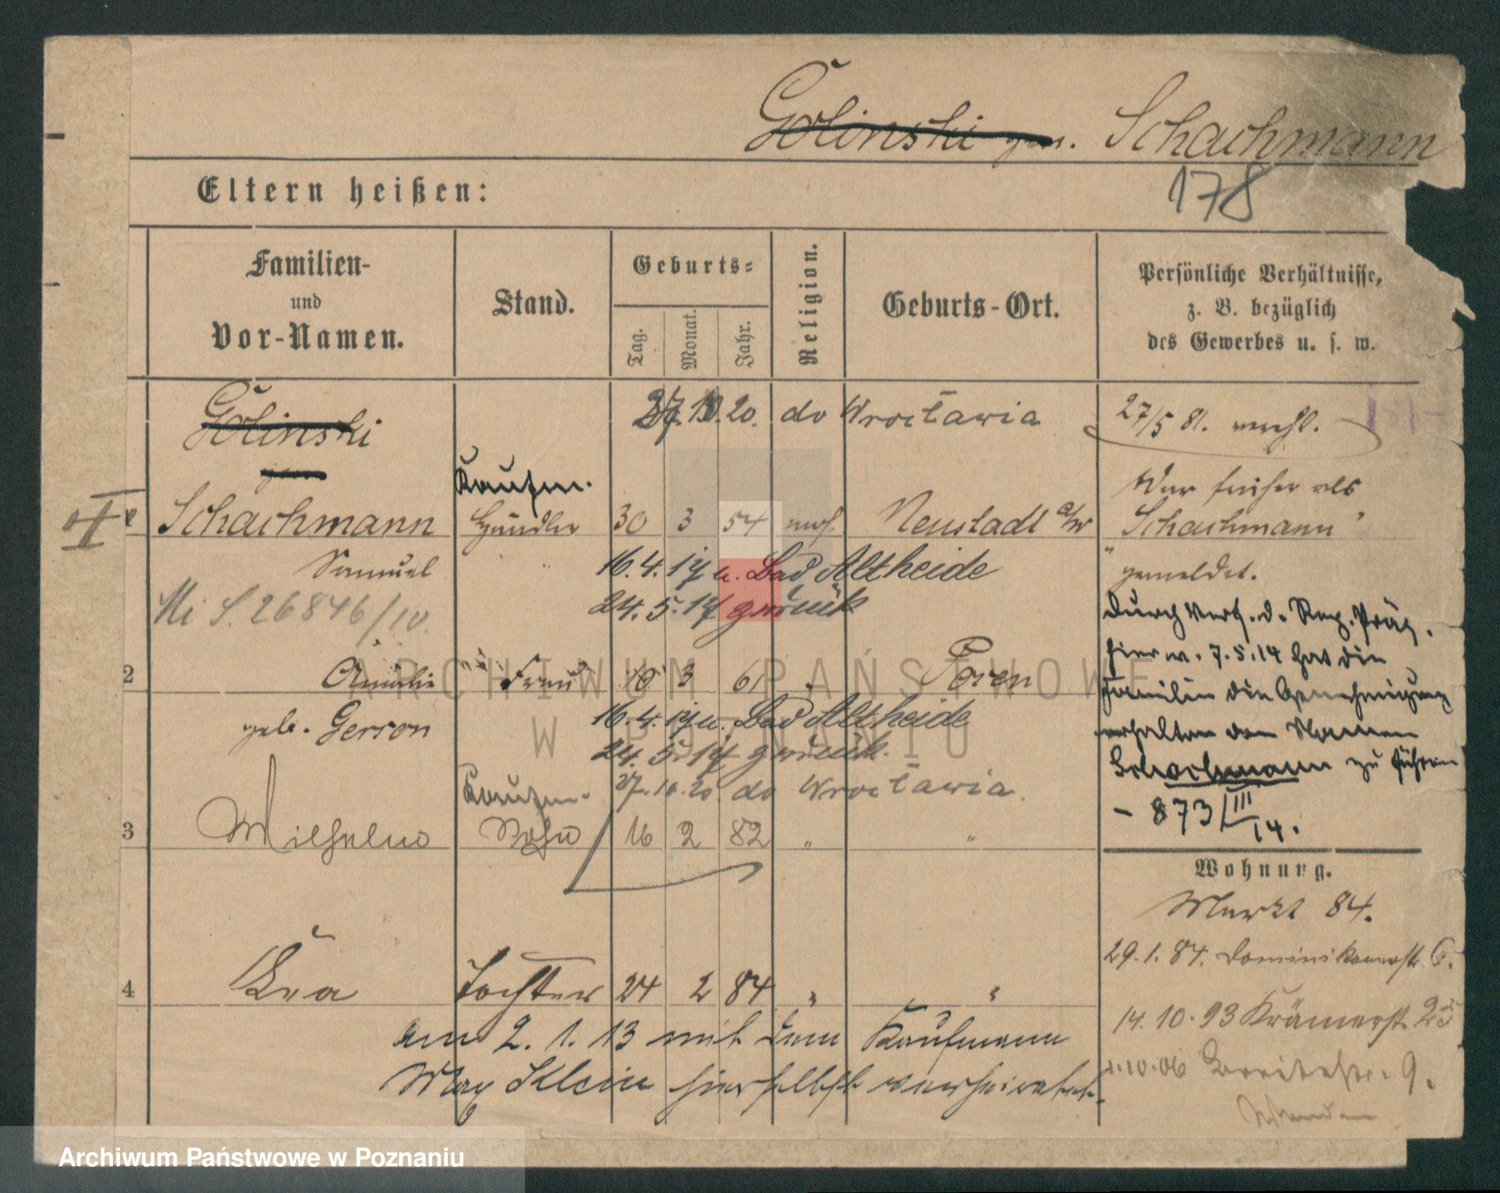 Golinski gen. Schachmann
178
Eltern heißen:
Familien-
und
Vor-Namen.
Stand.
Geburts-
Tag.
Monat.
Jahr.
Religion.
Geburts-Ort.
Persönliche Verhältnisse,
z. B. bezüglich
des Gewerbes u. s. w.
Golinski
27.10.20. do Wrocławia
27/5 81. verehl.
Kaufm.
War früher als
Schachmann Händler 30 3 54 mos. Neustadt a/W
"Schachmann"
Samuel
16.4.17 u. Bad Altheide
gemeldet.
24.5.17 zurück
Durch Verf. d. Reg. Präs.
hier v. 7.5.14 hat die
Familie die Genehmigung
erhalten den Namen
Schachmann zu führen
- 873/III 14.
2 Amalie Frau 16 3 61 " Posen
geb. Gerson
16.4.17 u. Bad Altheide
24.5.17 zurück.
Kaufm. 27.10.20. do Wrocławia.
3 Wilhelm Sohn 16 2 82 " "
Wohnung.
Markt 84.
29.1.84. Dominikanerstr. 6.
4 Eva Tochter 24 2 84 " "
14.10.93 Krämerstr. 23
am 2.1.13 mit dem Kaufmann
Max Klein hierselbst verheiratet.
1.10.06 Breitestr. 9.
ARCHIWUM PAŃSTWOWE
W POZNANIU
Archiwum Państwowe w Poznaniu